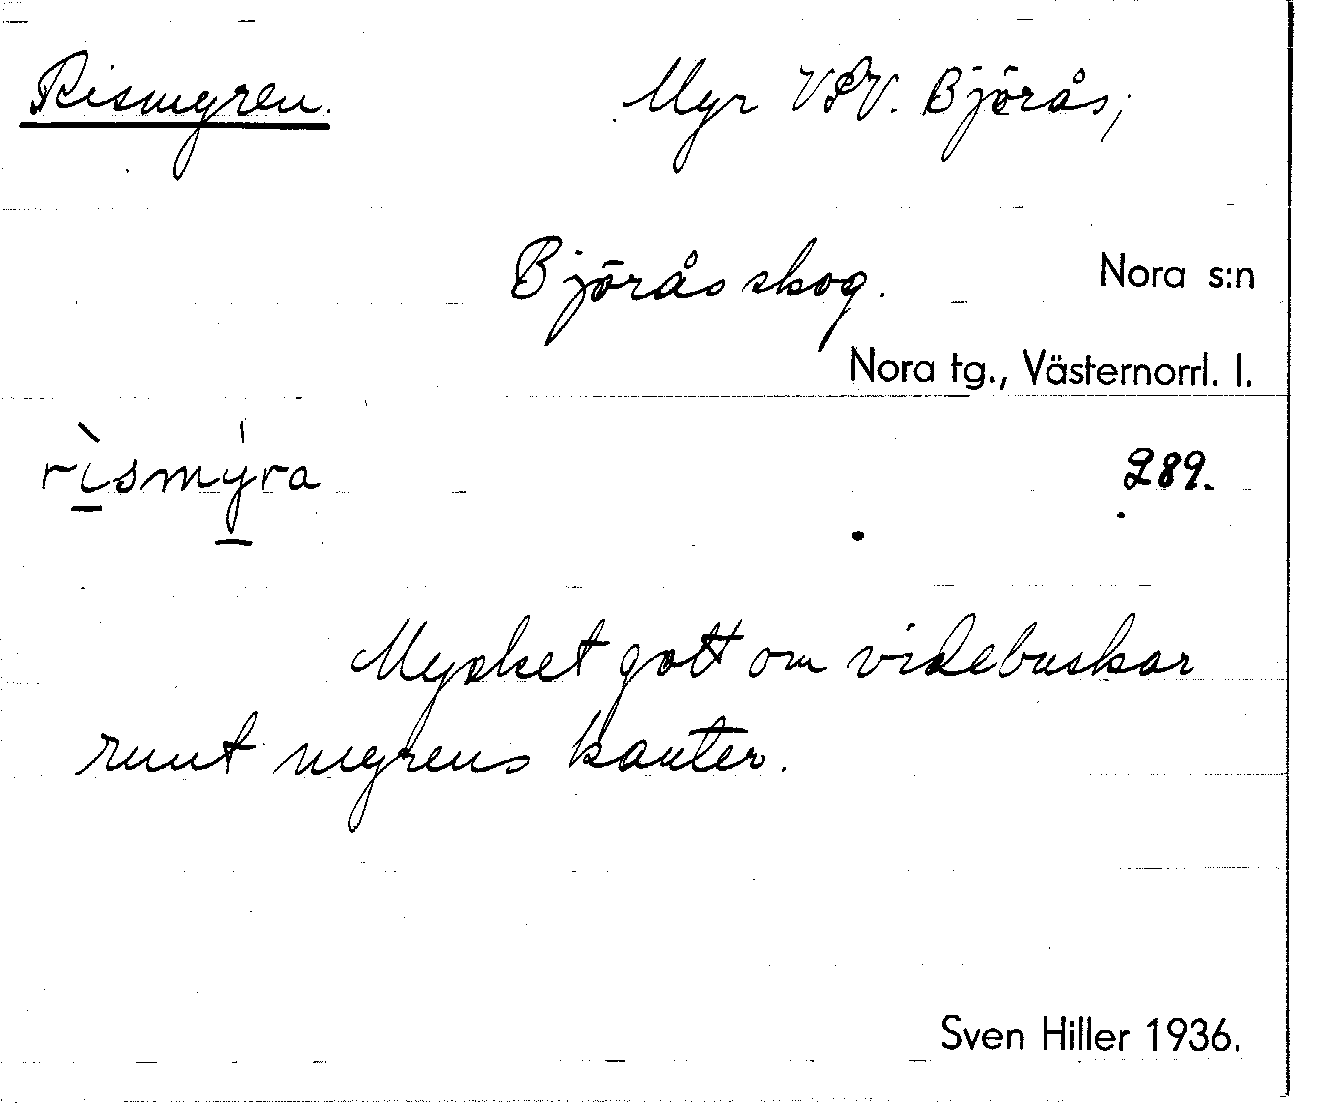 Rismyren. Myr VSV. Björås,
Björåsskog. Nora s:n
Nora tg., Västernorrl. l.
rìsmýra 289.
Mycket gott om videbuskar
runt myrens kanter.
Sven Hiller 1936.